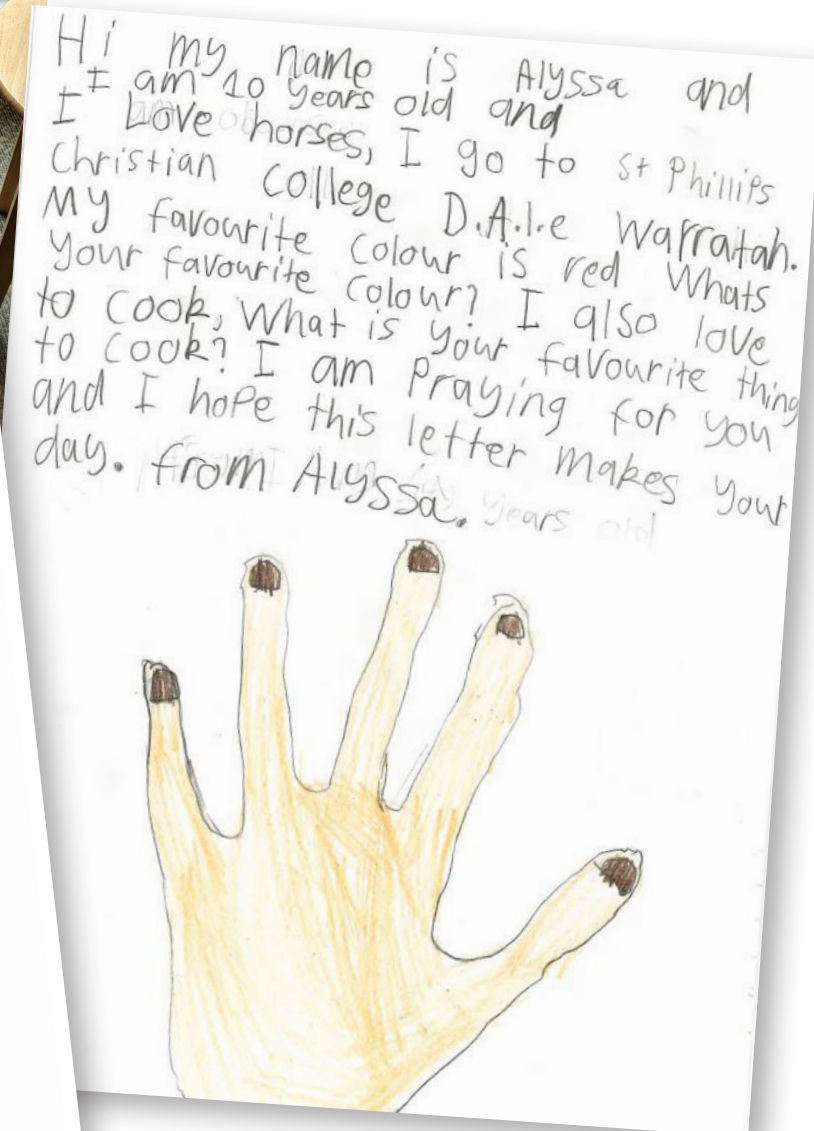 Hi my name is Alyssa and
I am 10 years old and
I Love horses, I go to St Phillips
Christian College D.A.l.e Warratah.
My favourite colour is red Whats
your favourite colour? I also love
to cook, What is your favourite thing
to cook? I am Praying for you
and I hope this letter makes your
day. from Alyssa.
years old